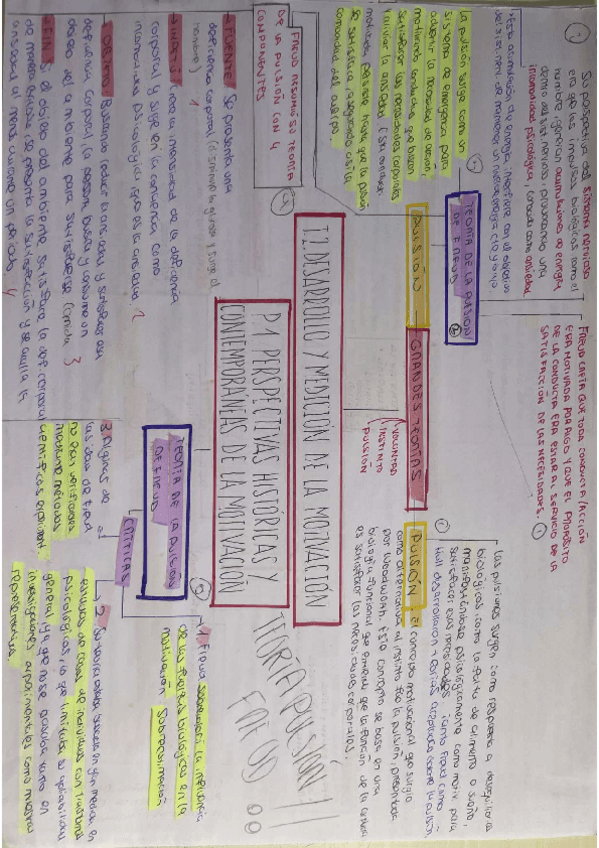 T2. DESARROLLO Y MEDICIÓN DE LA MOTIVACIÓN
P1 PERSPECTIVAS HISTÓRICAS Y
CONTEMPORÁNEAS DE LA MOTIVACIÓN
TEORÍA PULSIÓN
FREUD
GRANDES TEORÍAS
VOLUNTAD
INSTINTO
PULSIÓN
PULSIÓN
TEORÍA DE LA PULSIÓN
DE FREUD
FREUD CREÍA QUE TODA CONDUCTA/ACCIÓN
ERA MOTIVADA POR ALGO Y QUE EL PROPÓSITO
DE LA CONDUCTA ERA ESTAR AL SERVICIO DE LA
SATISFACCIÓN DE LAS NECESIDADES.
Su perspectiva del sistema nervioso
era que los impulsos biológicos como el
hambre, generan acumulaciones de energía
dentro del sist nervioso, provocando una
incomodidad psicológica, conocida como ansiedad
Esta acumulación de energía, interfiere en el objetivo
del sist. nerv. de mantener un nivel energía cte y bajo.
La pulsión surge como un
sistema de emergencia para
advertir la necesidad de acción,
motivando conductas que buscan
satisfacer las necesidades corporales
y aliviar la ansiedad
se satisfaga, asegurando así la
comodidad del cuerpo
FREUD RESUMIÓ SU TEORÍA
DE LA PULSIÓN CON 4
COMPONENTES
FUENTE: Se presenta una
deficiencia corporal (disminuye la glucosa y surge el
hambre) 1
corporal y surge en la conciencia como
incomodidad psicológica, que es la ansiedad 2
OBJETO: Buscando reducir la ansiedad y satisfacer esa
deficiencia corporal, la persona busca y consume un
objeto del ambiente para satisfacerse (comida) 3
FIN: Si el objeto del ambiente satisface la def. corporal
de manera exitosa, se presenta la satisfacción y se anula la
ansiedad al menos durante un período 4
PULSIÓN: el concepto motivacional que surgió
como alternativa al instinto fue la pulsión, presentada
por Woodworth. Este concepto se basa en una
biología funcional que entiende que la función de la conducta
es satisfacer las necesidades corporales.
Las pulsiones surgen como respuesta a desequilibrios
biológicos, como la falta de alimento o sueño,
manifestándose psicológicamente como motiv para
satisfacer esas necesidades. Tanto Freud como
Hull desarrollaron teorías aceptadas sobre la pulsión
TEORÍA DE LA PULSIÓN
DE FREUD
CRÍTICAS
1. Freud sobrevaloró la influencia
de las fuerzas biológicas en la
motivación
2. Su teoría estaba basada en gran medida en
estudios de casos de individuos con trastornos
psicológicos, lo que limitaba su aplicabilidad
general, ya que no se basaba tanto en
investigaciones experimentales como muestras
representativas
3. Algunas de
las ideas de Freud
no eran verificables
mediante métodos
científicos experiment.